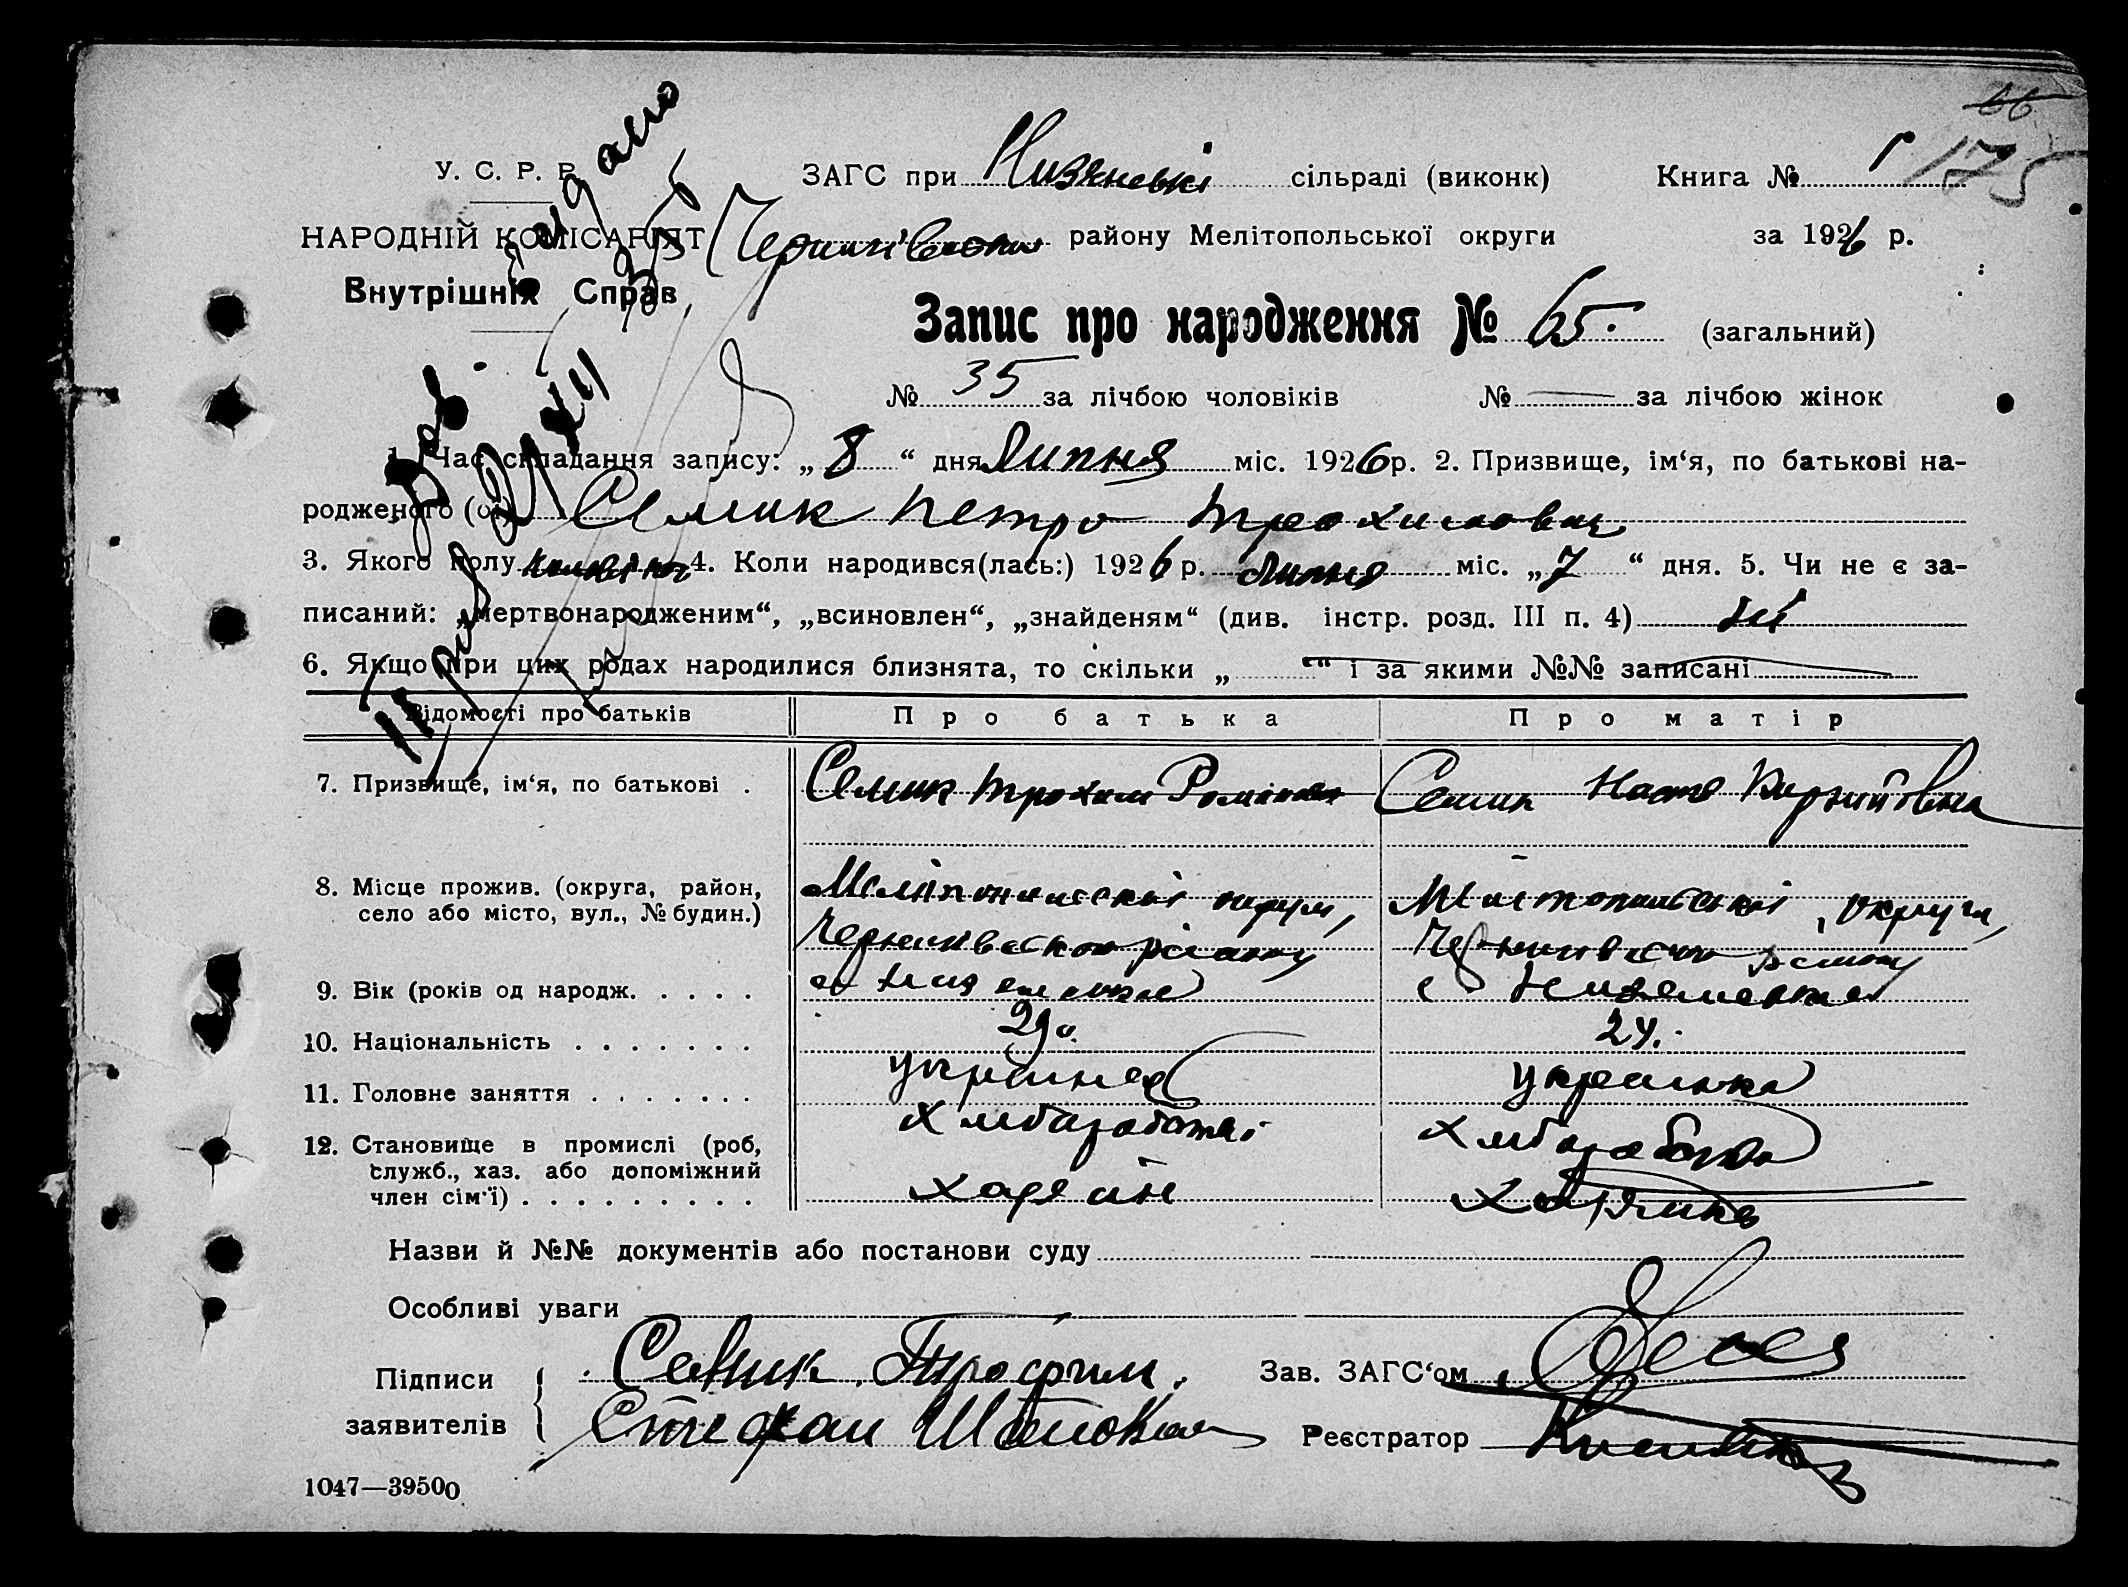 175
У. С. Р. Р.
ЗАГС при сільраді (виконк) Книга № 1
НАРОДНІЙ КОМІСАРІЯТ району Мелітопольської округи за 1926 р.
Внутрішніх Справ
Запис про народження № 65. (загальний)
№ 35 за лічбою чоловіків № — за лічбою жінок
1. Час складання запису: „ 8 “ дня Липня міс. 1926 р. 2. Призвище, ім‘я, по батькові на-
родженого (ої) Семик Петро Трохимович
3. Якого полу 4. Коли народився(лась:) 1926 р. Липня міс. „ 7 “ дня. 5. Чи не є за-
писаний: „мертвонародженим“, „всиновлен“, „знайденям“ (див. інстр. розд. III п. 4) ні
6. Якщо при цих родах народилися близнята, то скільки „ — “ і за якими №№ записані —
Відомості про батьків Про батька Про матір
7. Призвище, ім‘я, по батькові . Семик Трохим Романович Семик Настя
8. Місце прожив. (округа, район, Мелітопольскої округи, Мелітопольської округи,
село або місто, вул., № будин.) Чернигівського району Чернигівського району
9. Вік (років од народж. . . . . с с
10. Національність . . . . . . . 29 24.
11. Головне заняття . . . . . . . українец українка
12. Становище в промислі (роб, хліборобство хліборобство
служб., хаз. або допоміжний
член сім‘ї) . . . . . . . . . хазяін хазяйка
Назви й №№ документів або постанови суду
Особливі уваги
Підписи Семик Трофим. Зав. ЗАГС‘ом
заявителів Стефан Реєстратор
1047—39500